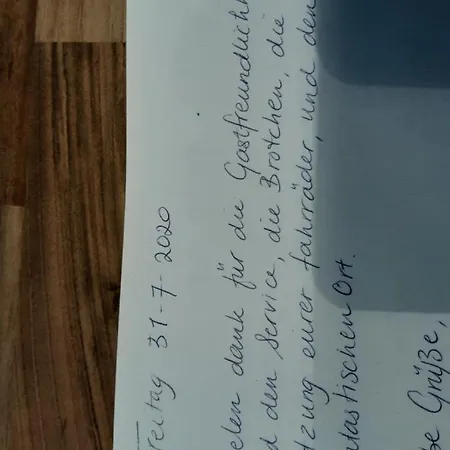 Freitag 31-7-2020
elen dank für die Gastfreundlichk
d den Service, die Brötchen, die
tzung eurer fahrräder, und den
ntastischen Ort.
be Grüße,